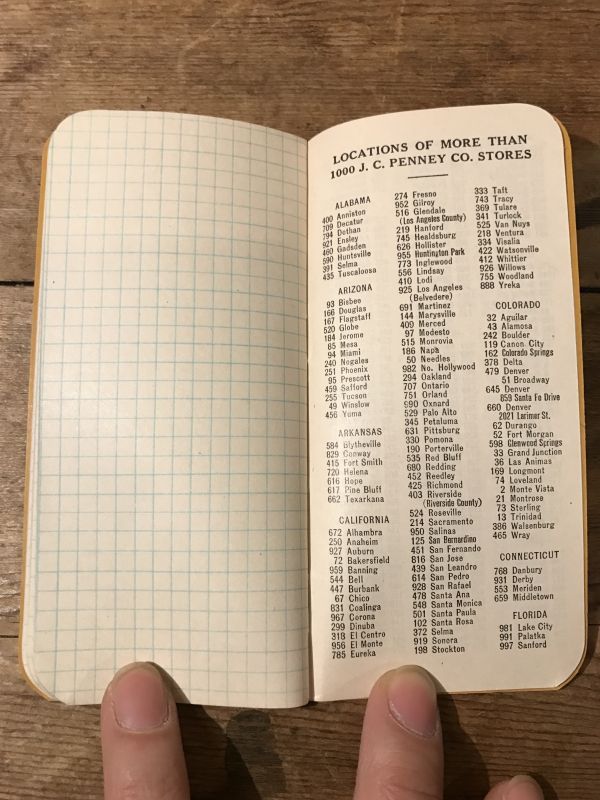 LOCATIONS OF MORE THAN
1000 J. C. PENNEY CO. STORES
ALABAMA
400 Anniston
709 Decatur
794 Dothan
921 Ensley
460 Gadsden
590 Huntsville
391 Selma
435 Tuscaloosa
ARIZONA
93 Bisbee
166 Douglas
167 Flagstaff
520 Globe
184 Jerome
85 Mesa
94 Miami
240 Nogales
251 Phoenix
95 Prescott
459 Safford
255 Tucson
49 Winslow
456 Yuma
ARKANSAS
584 Blytheville
829 Conway
415 Fort Smith
720 Helena
616 Hope
617 Pine Bluff
662 Texarkana
CALIFORNIA
672 Alhambra
250 Anaheim
927 Auburn
72 Bakersfield
959 Banning
544 Bell
447 Burbank
67 Chico
831 Coalinga
967 Corona
299 Dinuba
318 El Centro
956 El Monte
785 Eureka
274 Fresno
952 Gilroy
516 Glendale
(Los Angeles County)
219 Hanford
745 Healdsburg
626 Hollister
955 Huntington Park
773 Inglewood
556 Lindsay
410 Lodi
925 Los Angeles
(Belvedere)
691 Martinez
144 Marysville
409 Merced
97 Modesto
515 Monrovia
186 Napa
50 Needles
982 No. Hollywood
294 Oakland
707 Ontario
751 Orland
990 Oxnard
529 Palo Alto
345 Petaluma
631 Pittsburg
330 Pomona
190 Porterville
535 Red Bluff
680 Redding
452 Reedley
425 Richmond
403 Riverside
(Riverside County)
524 Roseville
214 Sacramento
950 Salinas
125 San Bernardino
451 San Fernando
816 San Jose
439 San Leandro
614 San Pedro
928 San Rafael
478 Santa Ana
548 Santa Monica
501 Santa Paula
102 Santa Rosa
372 Selma
919 Sonora
198 Stockton
333 Taft
743 Tracy
369 Tulare
341 Turlock
525 Van Nuys
218 Ventura
334 Visalia
422 Watsonville
412 Whittier
926 Willows
755 Woodland
888 Yreka
COLORADO
32 Aguilar
43 Alamosa
242 Boulder
119 Canon City
162 Colorado Springs
378 Delta
479 Denver
51 Broadway
645 Denver
859 Santa Fe Drive
660 Denver
2021 Larimer St.
62 Durango
52 Fort Morgan
598 Glenwood Springs
33 Grand Junction
36 Las Animas
169 Longmont
74 Loveland
2 Monte Vista
21 Montrose
73 Sterling
13 Trinidad
386 Walsenburg
465 Wray
CONNECTICUT
768 Danbury
931 Derby
553 Meriden
659 Middletown
FLORIDA
981 Lake City
991 Palatka
997 Sanford